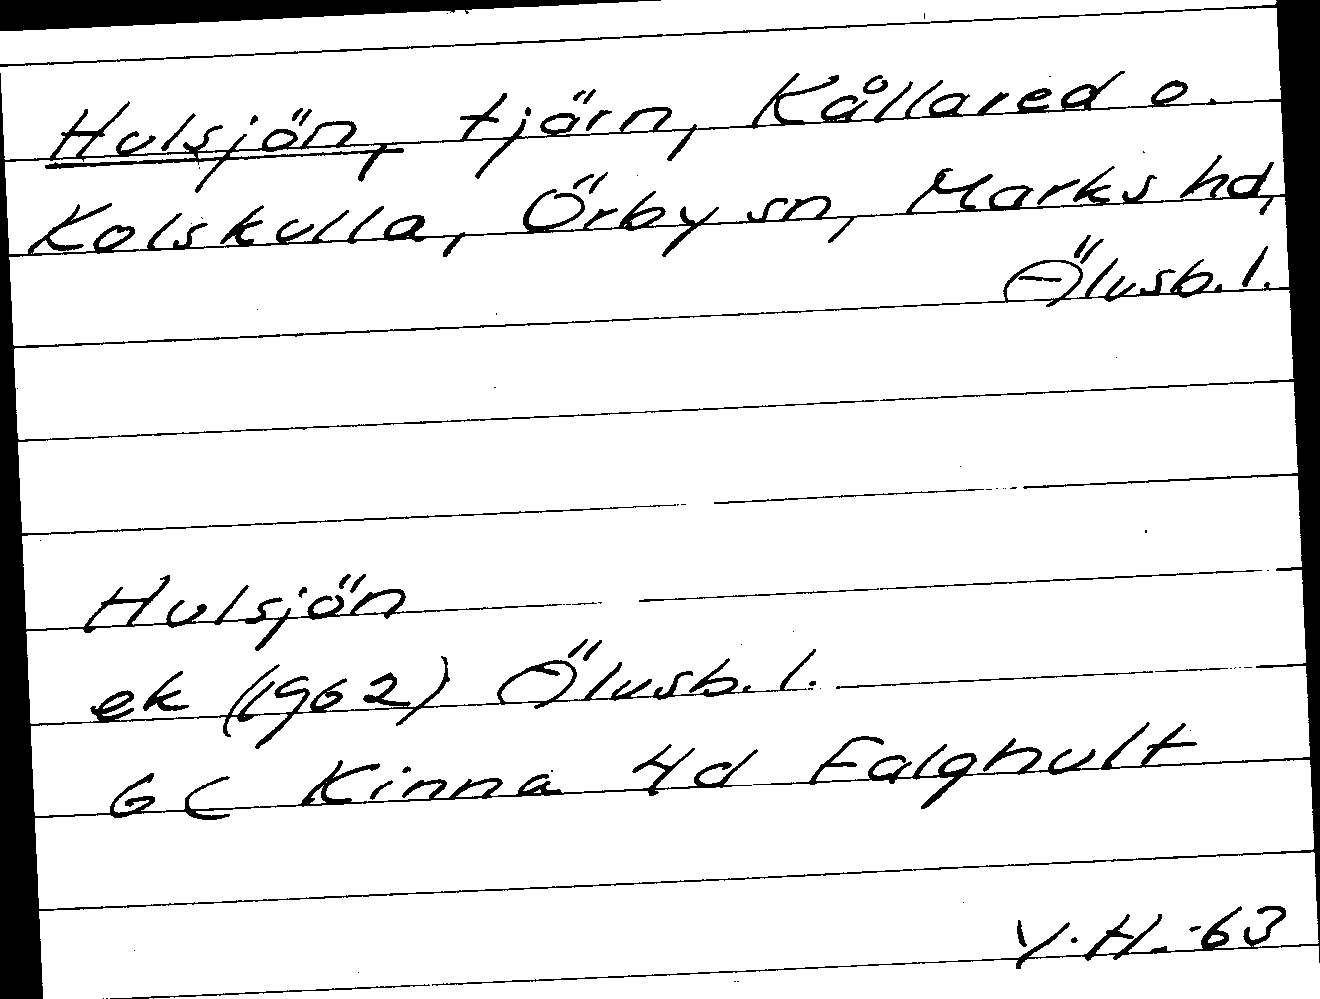 Hulsjön, tjärn, Kållared o.
Kolskulla, Örby sn, Marks hd,
Älvsb. l.
Hulsjön
ek (1962) Älvsb. l.
6C Kinna 4d Falghult
Y. H. -63